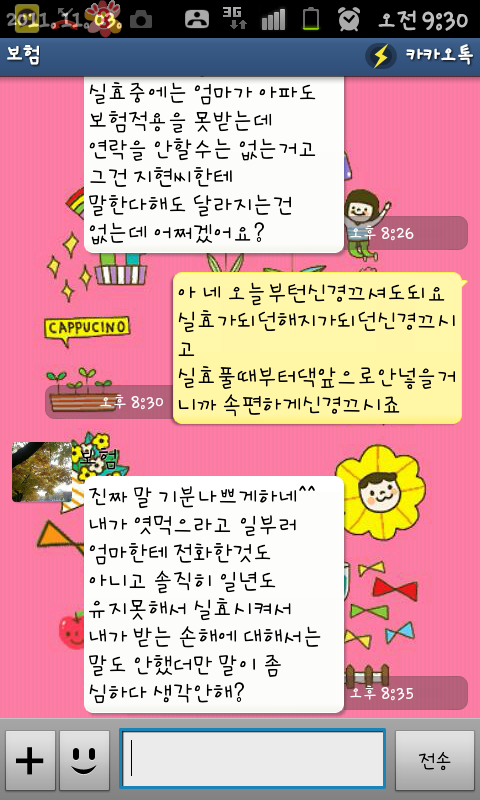 2011. 11. 03.
3G
오전 9:30
보험
카카오톡
실효중에는 엄마가 아파도
보험적용을 못받는데
연락을 안할수는 없는거고
그건 지현씨한테
말한다해도 달라지는건
없는데 어쩌겠어요?
오후 8:26
CAPPUCINO
아 네 오늘부턴신경끄셔도되요
실효가되던해지가되던신경끄시
고
실효풀때부터댁앞으로안넣을거
니까 속편하게신경끄시죠
오후 8:30
보험
진짜 말 기분나쁘게하네^^
내가 엿먹으라고 일부러
엄마한테 전화한것도
아니고 솔직히 일년도
유지못해서 실효시켜서
내가 받는 손해에 대해서는
말도 안했더만 말이 좀
심하다 생각안해?
오후 8:35
전송